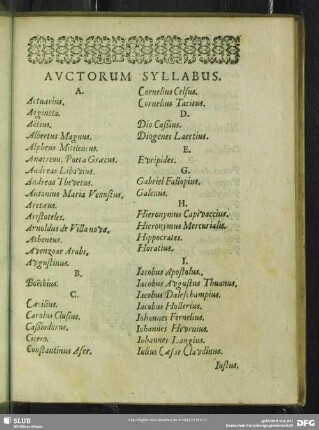 AVCTORUM SYLLABUS.
A.
Actuarius.
Aegineta.
Aëtius.
Albertus Magnus.
Alpheus Mitilenus.
Anacreon, Poeta Græcus.
Andreas Libavius.
Andreas Thevetus.
Antonius Maria Venustus.
Aretæus.
Aristoteles.
Arnoldus de Villanova.
Atheneus.
Avenzoar Arabs.
Augustinus.
B.
Boëthius.
C.
Cæcilius.
Carolus Clusius.
Cassiodorus.
Cicero.
Constantinus Afer.
Cornelius Celsus.
Cornelius Tacitus.
D.
Dio Cassius.
Diogenes Laertius.
E.
Euripides.
G.
Gabriel Fallopius.
Galenus.
H.
Hieronymus Capivaccius.
Hieronymus Mercurialis.
Hippocrates.
Horatius.
I.
Iacobus Apostolus.
Iacobus Augustus Thuanus.
Iacobus Daleschampius.
Iacobus Hollerius.
Iohannes Fernelius.
Iohannes Heurnius.
Iohannes Langius.
Iulius Cæsar Claudinus.
Iustus.
SLUB
Wir führen Wissen.
gefördert von der
Deutschen Forschungsgemeinschaft
DFG